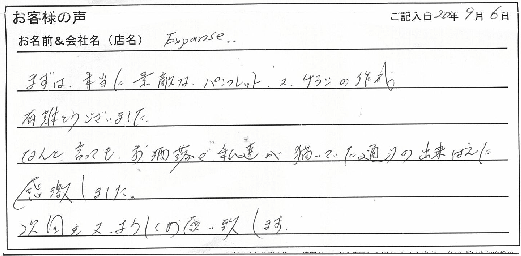 お客様の声 ご記入日2014年9月6日
お名前&会社名(店名) Expanse..
まずは、本当に素敵なパンフレット、又、チラシの作成
有難とうございました。
なんと言っても、お洒落で私達が描いていた通りの出来ばえに
感激しました。
次回も又、よろしくお願い致します。